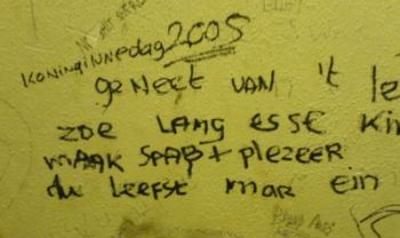 Koninginnedag 2005
geneet van 't le
zoe lang esse kin
maak spas + plezeer
du leefst mar ein